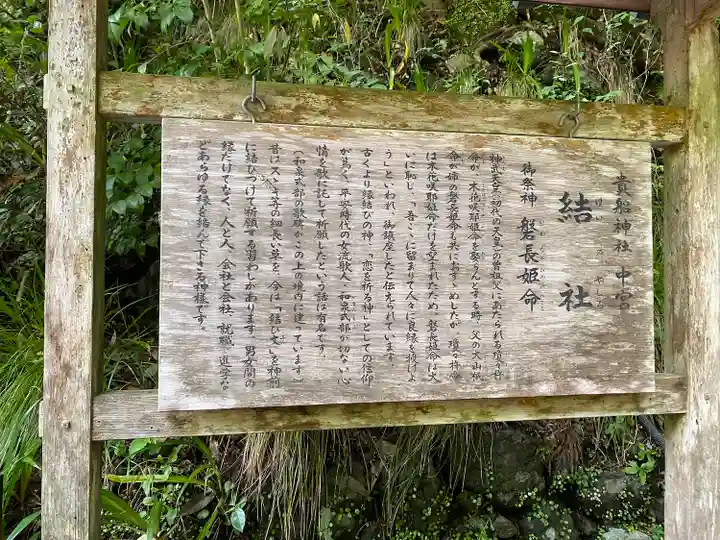 貴船神社 中宮
結社
けいのやしろ
御祭神 磐長姫命
神武天皇(初代の天皇)の曽祖父にあたられる瓊々杵
命が、木花咲耶姫命を娶らんとする時、父の大山祇
命が姉の磐長姫命も共におすゝめしたが、瓊々杵命
は木花咲耶姫命だけを望まれたため、磐長姫命は大
いに恥じ、「吾こゝに留まりて人々に良縁を授けよ
う」といわれ、御鎮座したと伝えられています。
古くより縁結びの神、「恋を祈る神」としての信仰
が篤く、平安時代の女流歌人・和泉式部が切ない心
情を歌に託して祈願したという話は有名です。
(和泉式部の歌碑がこの上の境内に建っています。)
昔はスゝキ等の細長い草を、今は「結び文」を神前
に結びつけて祈願する習わしがあります。男女間の
縁だけでなく、人と人、会社と会社、就職、進学など
どあらゆる縁を結んで下さる神様です。